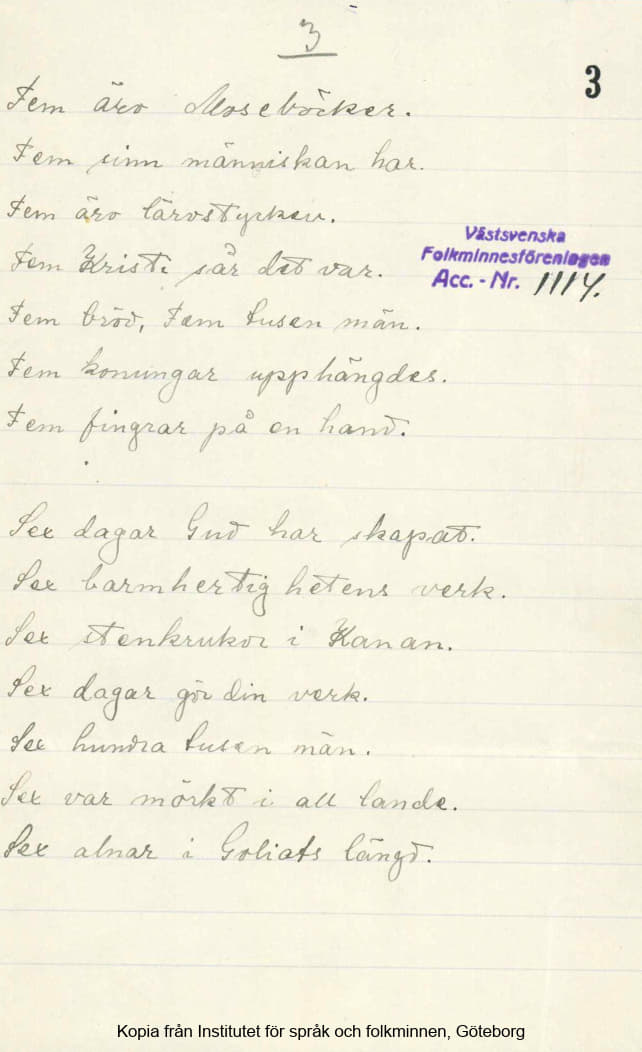 3
3
Fem äro Moseböcker.
Fem sinn människan har.
Fem äro lärostycken.
Västsvenska
Folkminnesföreningen
Acc. - Nr. 1114.
Fem Kristi sår det var.
Fem bröd, Fem tusen män.
Fem konungar upphängdes.
Fem fingrar på en hand.
Sex dagar Gud har skapat.
Sex barmhertighetens verk.
Sex stenkrukor i Kanan.
Sex dagar gör din verk.
Sex hundra tusen män.
Sex var mörkt i all lande.
Sex alnar i Goliats längd.
Kopia från Institutet för språk och folkminnen, Göteborg